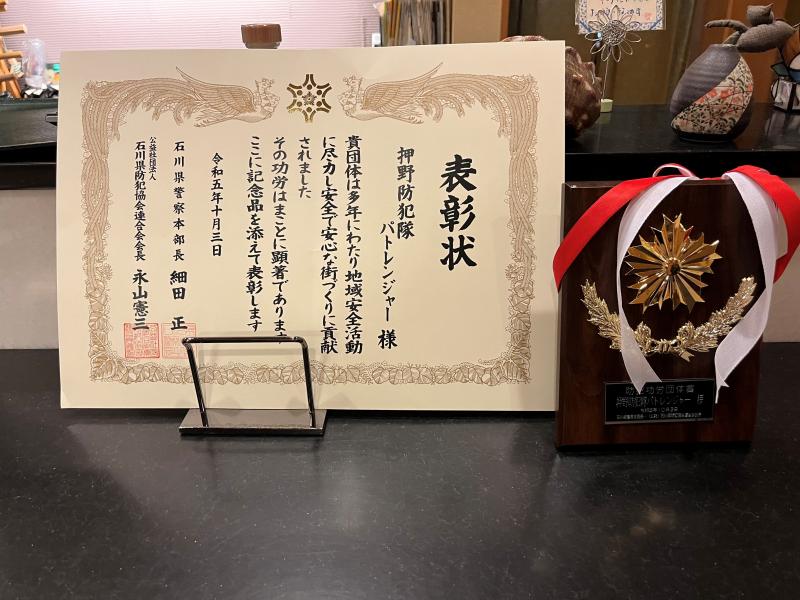 表彰状
押野防犯隊
パトレンジャー 様
貴団体は多年にわたり地域安全活動
に尽力し安全で安心な街づくりに貢献
されました
その功労はまことに顕著であります
ここに記念品を添えて表彰します
令和五年十月三日
石川県警察本部長 細田 正
公益社団法人
石川県防犯協会連合会会長 永山憲三
功労団体賞
押野防犯隊パトレンジャー 様